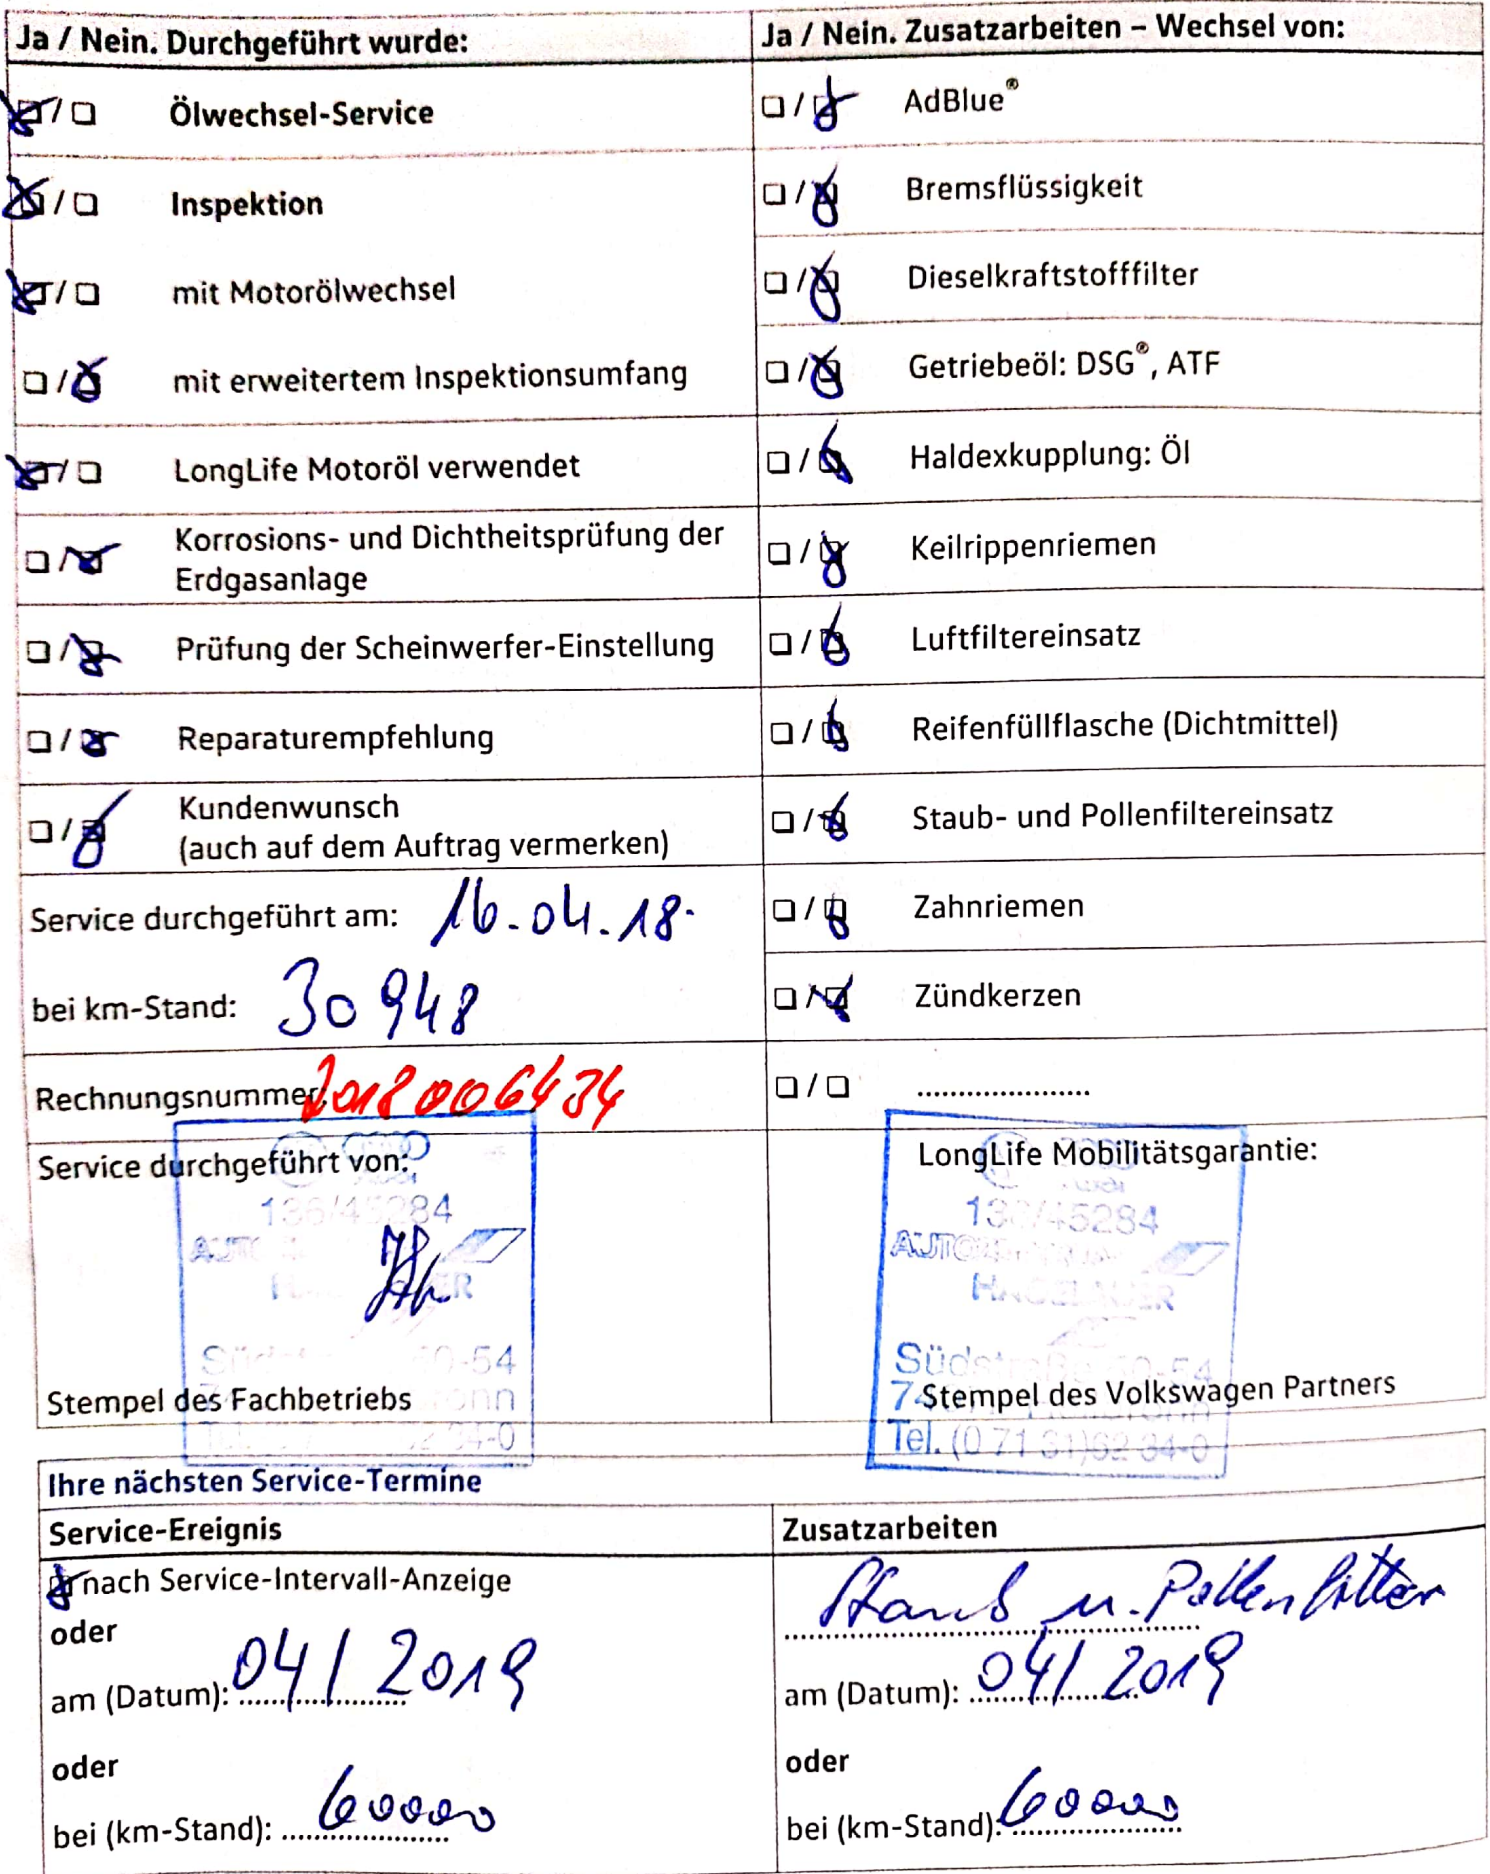 Ja / Nein. Durchgeführt wurde:
Ölwechsel-Service
Inspektion
mit Motorölwechsel
mit erweitertem Inspektionsumfang
LongLife Motoröl verwendet
Korrosions- und Dichtheitsprüfung der
Erdgasanlage
Prüfung der Scheinwerfer-Einstellung
Reparaturempfehlung
Kundenwunsch
(auch auf dem Auftrag vermerken)
Service durchgeführt am: 16.04.18.
bei km-Stand: 30948
Rechnungsnummer: 2018006434
Service durchgeführt von:
136/45284
Stempel des Fachbetriebs
Ja / Nein. Zusatzarbeiten – Wechsel von:
AdBlue®
Bremsflüssigkeit
Dieselkraftstofffilter
Getriebeöl: DSG®, ATF
Haldexkupplung: Öl
Keilrippenriemen
Luftfiltereinsatz
Reifenfüllflasche (Dichtmittel)
Staub- und Pollenfiltereinsatz
Zahnriemen
Zündkerzen
.....................
LongLife Mobilitätsgarantie:
136/45284
HAGELAUER
Südstraße 50-54
Stempel des Volkswagen Partners
Tel. (0 71 31)62 34-0
Ihre nächsten Service-Termine
Service-Ereignis
nach Service-Intervall-Anzeige
oder
am (Datum): 04/2019
oder
bei (km-Stand): 60000
Zusatzarbeiten
Staub u. Pollenfilter
am (Datum): 04/2019
oder
bei (km-Stand): 60000